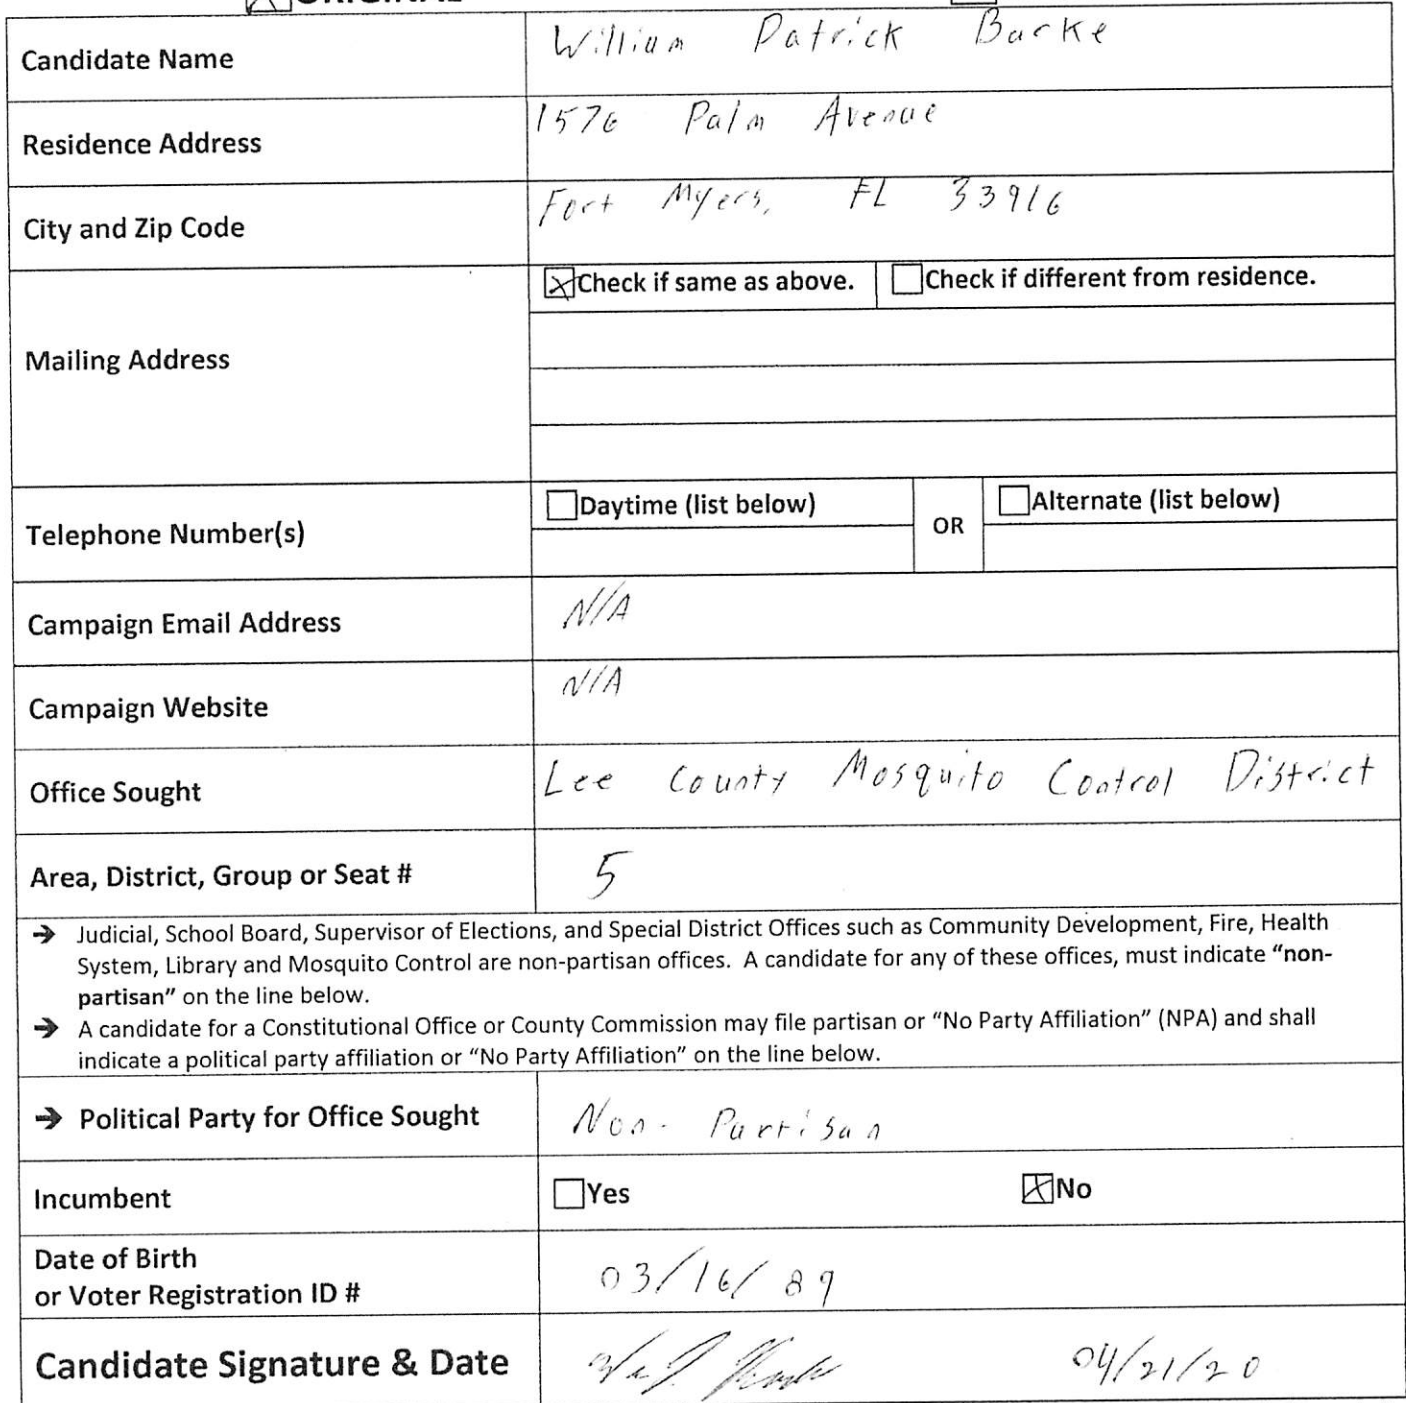 ORIGINAL
Candidate Name William Patrick Burke
Residence Address 1576 Palm Avenue
City and Zip Code Fort Myers, FL 33916
Check if same as above. Check if different from residence.
Mailing Address
Daytime (list below) Alternate (list below)
Telephone Number(s) OR
Campaign Email Address N/A
Campaign Website N/A
Office Sought Lee County Mosquito Control District
Area, District, Group or Seat # 5
→ Judicial, School Board, Supervisor of Elections, and Special District Offices such as Community Development, Fire, Health
System, Library and Mosquito Control are non-partisan offices. A candidate for any of these offices, must indicate “non-
partisan” on the line below.
→ A candidate for a Constitutional Office or County Commission may file partisan or “No Party Affiliation” (NPA) and shall
indicate a political party affiliation or “No Party Affiliation” on the line below.
→ Political Party for Office Sought Non-Partisan
Incumbent Yes No
Date of Birth
or Voter Registration ID # 03/16/89
Candidate Signature & Date 04/21/20